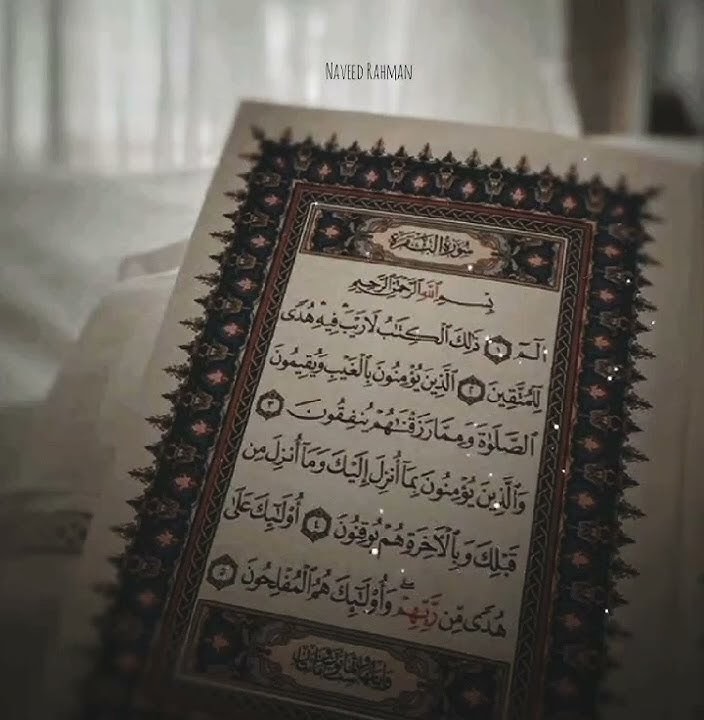 NAVEED RAHMAN
سُورَةُ الْبَقَرَةِ
بِسْمِ اللَّهِ الرَّحْمَٰنِ الرَّحِيمِ
الٓمٓ ١ ذَٰلِكَ ٱلْكِتَٰبُ لَا رَيْبَ فِيهِ هُدًى
لِّلْمُتَّقِينَ ٢ ٱلَّذِينَ يُؤْمِنُونَ بِٱلْغَيْبِ وَيُقِيمُونَ
ٱلصَّلَوٰةَ وَمِمَّا رَزَقْنَٰهُمْ يُنفِقُونَ ٣
وَٱلَّذِينَ يُؤْمِنُونَ بِمَآ أُنزِلَ إِلَيْكَ وَمَآ أُنزِلَ مِن
قَبْلِكَ وَبِٱلْأٓخِرَةِ هُمْ يُوقِنُونَ ٤ أُو۟لَٰٓئِكَ عَلَىٰ
هُدًى مِّن رَّبِّهِمْ ۖ وَأُو۟لَٰٓئِكَ هُمُ ٱلْمُفْلِحُونَ ٥